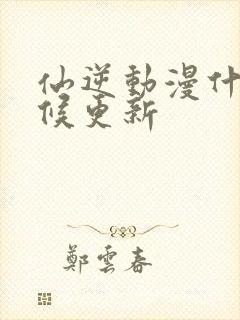 仙逆動漫什
候更新
鄭雲春